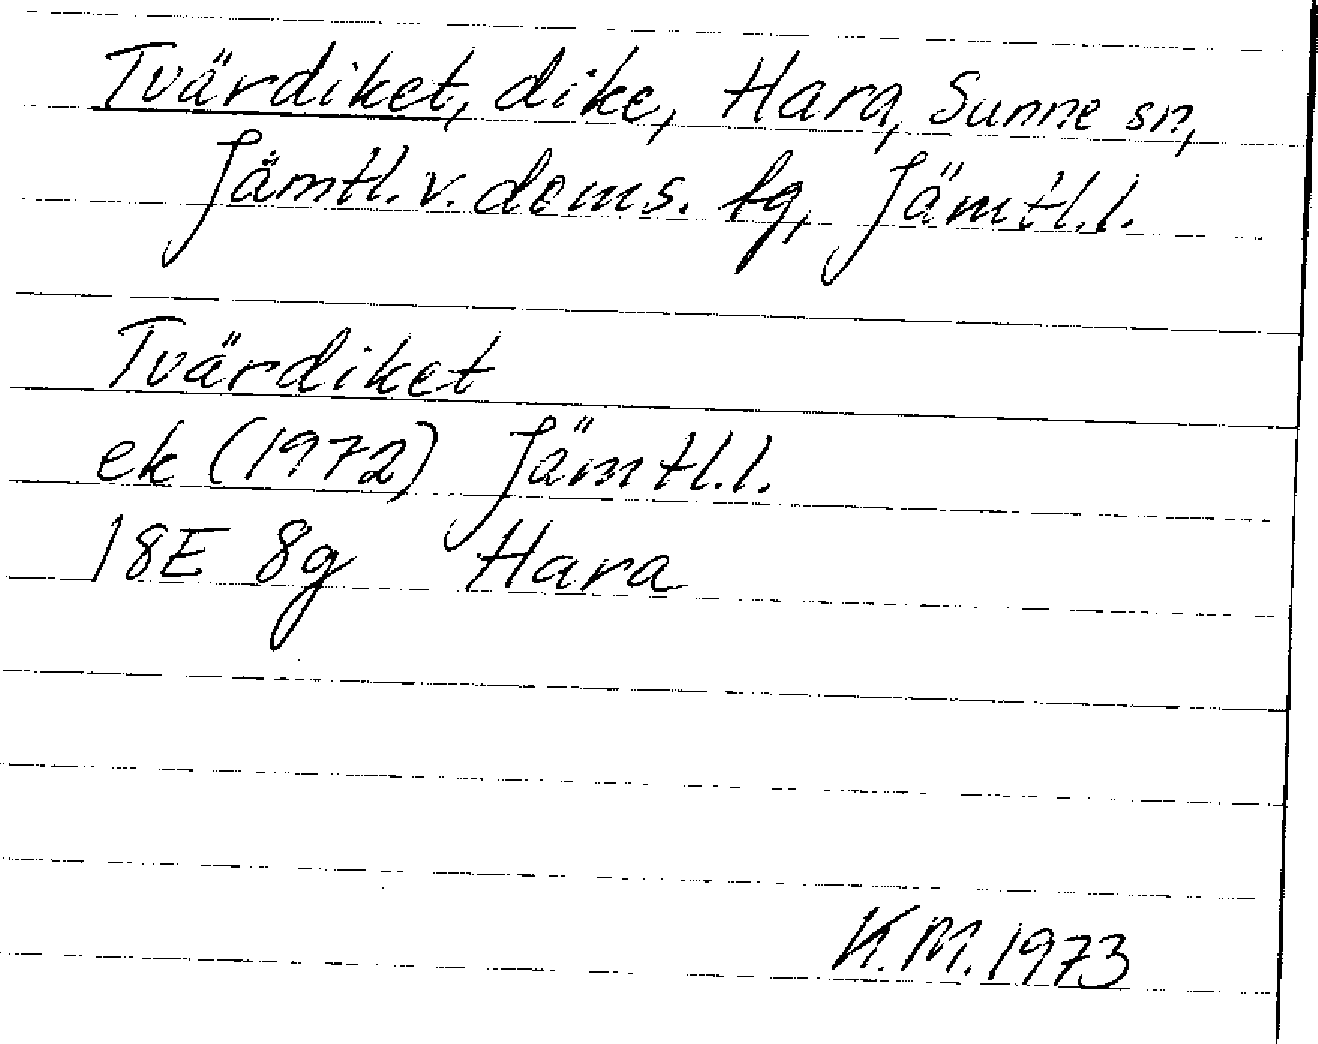 Tvärdiket, dike, Hara, Sunne sn,
Jämtl. v. doms. tg, Jämtl. l.
Tvärdiket
ek (1972) Jämtl. l.
18E 8g Hara
K. M. 1973